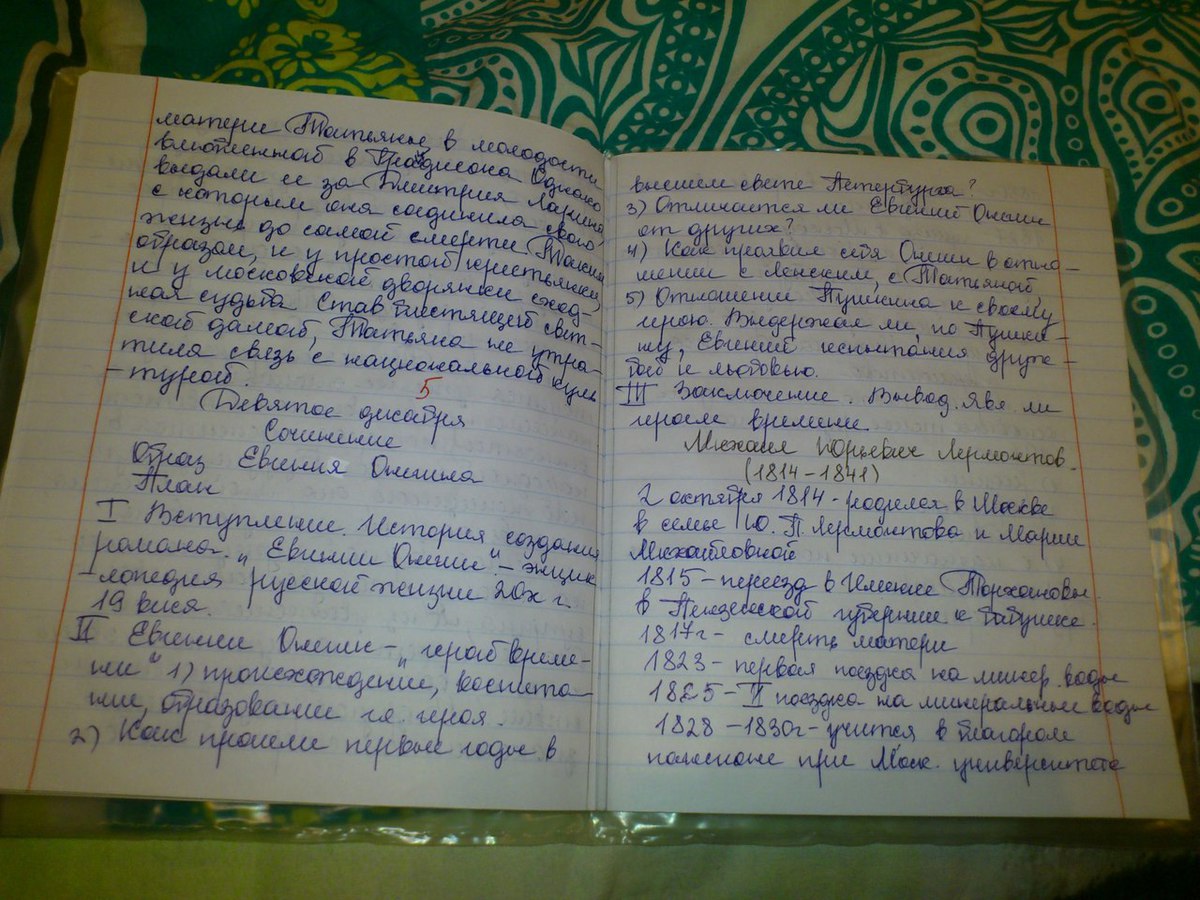 матери Татьяны, в молодости
влюбленной в Грандисона. Однако
выдали ее за Дмитрия Ларина
с которым она соединила свою
жизнь до самой смерти. Таким
образом, и у простой крестьянки,
и у московской дворянки сход-
ная судьба. Став блестящей свет-
ской дамой, Татьяна не утра-
тила связь с национальной куль
-турой.
5
Девятое декабря
Сочинение
Образ Евгения Онегина
План
I Вступление. История создания
романа. „Евгении Онегин" – энцик
-лопедия русской жизни 20х г.
19 века.
II Евгении Онегин – „герой време-
ни" 1) происхождение, воспита-
ние, образование гл. героя.
2) Как прошли первые годы в
высшем свете Петербурга?
3) Отличается ли Евгений Онегин
от других?
4) Как проявил себя Онегин в отно-
шении с Ленским, с Татьяной
5) Отношение Пушкина к своему
герою. Выдержал ли, по Пушки-
ну, Евгений испытания друж-
бой и любовью.
III Заключение. Вывод. Явл ли
героем времени.
Михаил Юрьевич Лермонтов.
(1814–1841)
2 октября 1814 - родился в Москве
в семье Ю. П. Лермонтова и Марии
Михайловной
1815 – переезд в Имение Тархановы
в Пензенской губернии к бабушке.
1817г – смерть матери
1823 – первая поездка на минер. воды
1825 – II поездка на минеральные воды
1828 – 1830г – учится в благором
пансионе при Моск. университете